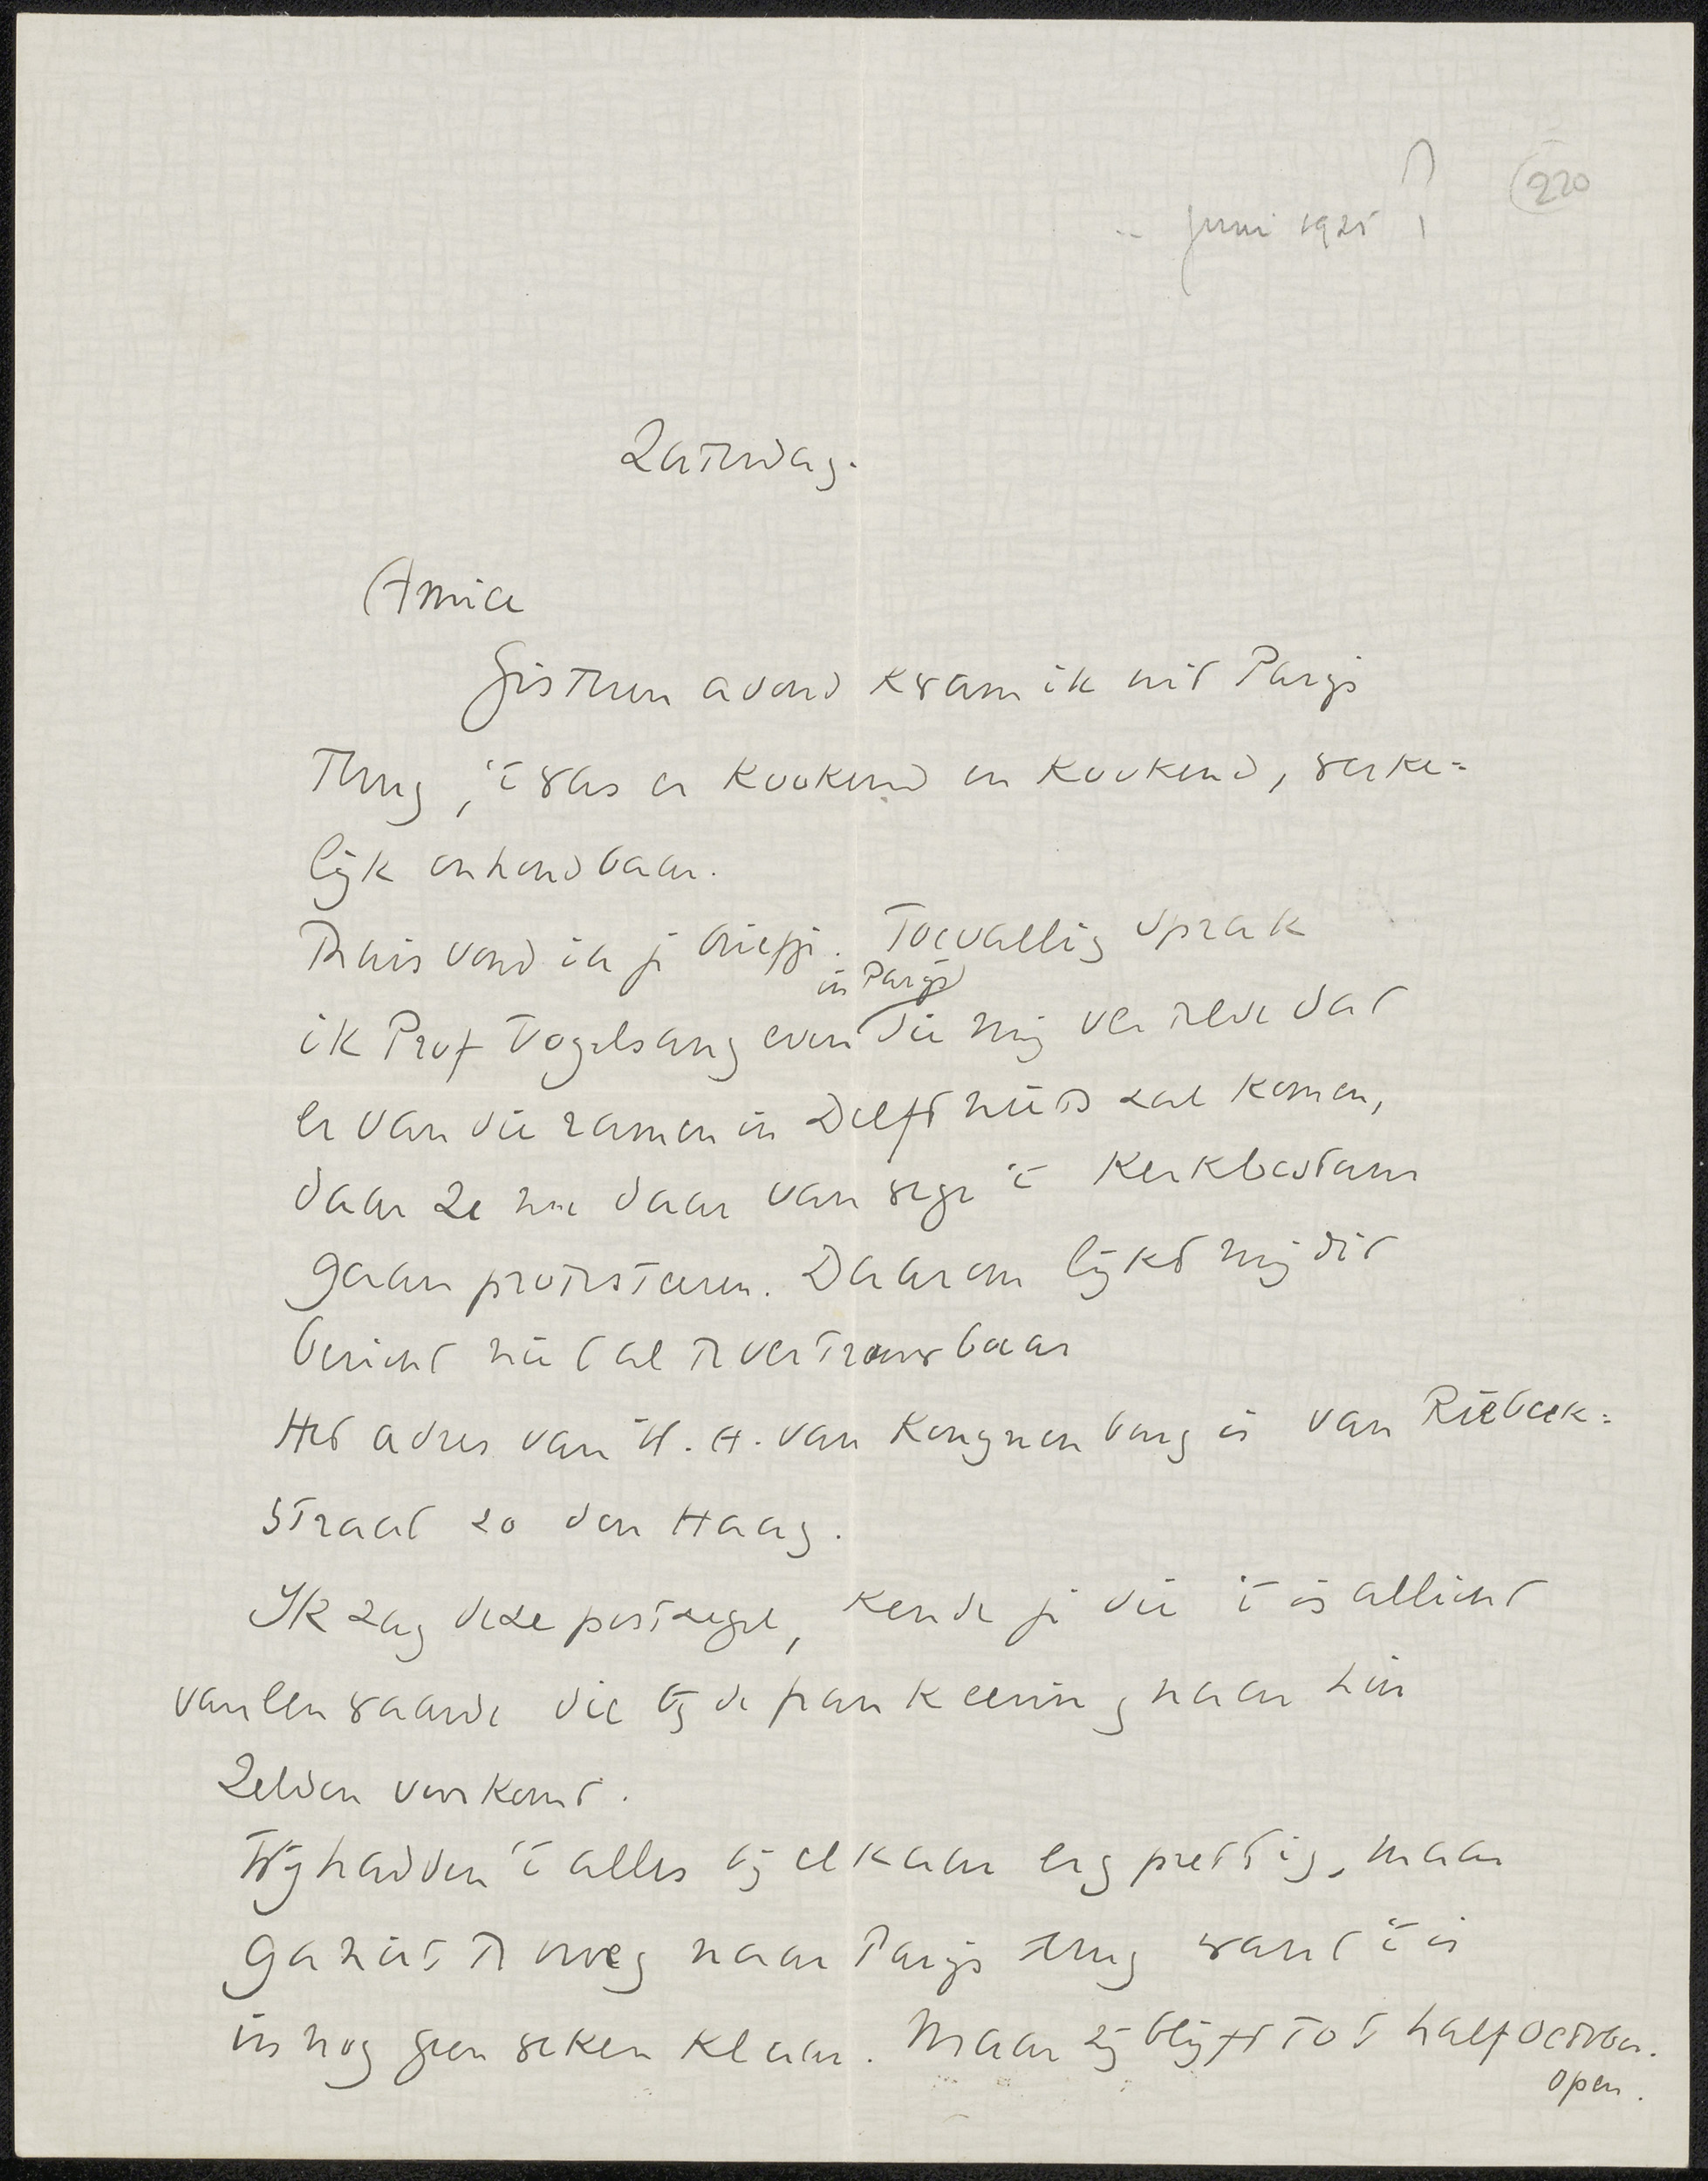 .. Juni 1925 ?
220
Zaterdag.
Amice
Gisteren avond kwam ik uit Parijs
terug, 't was er kookend en kookend, werke=
lijk onhoudbaar.
Thuis vond ik je briefje. Toevallig sprak
in Parijs
ik Prof Vogelsang even die mij vertelde dat
er van die ramen in Delft niets zal komen,
daar ze nu daar van wege 't Kerkbestuur
gaan protesteren. Daarom lijkt mij dit
bericht niet al te vertrouwbaar
Het adres van W. A. van Konijnenburg is van Riebeek=
straat 20 den Haag.
Ik zag deze postzegel, kende je die 't is allicht
van een waarde die bij de frankeering naar hier
zelden voorkomt.
Wij hadden 't alles bij elkaar erg prettig, maar
ga niet te vroeg naar Parijs terug want 't is
in nog geen weken klaar. Maar zij blijft tot half October.
open.